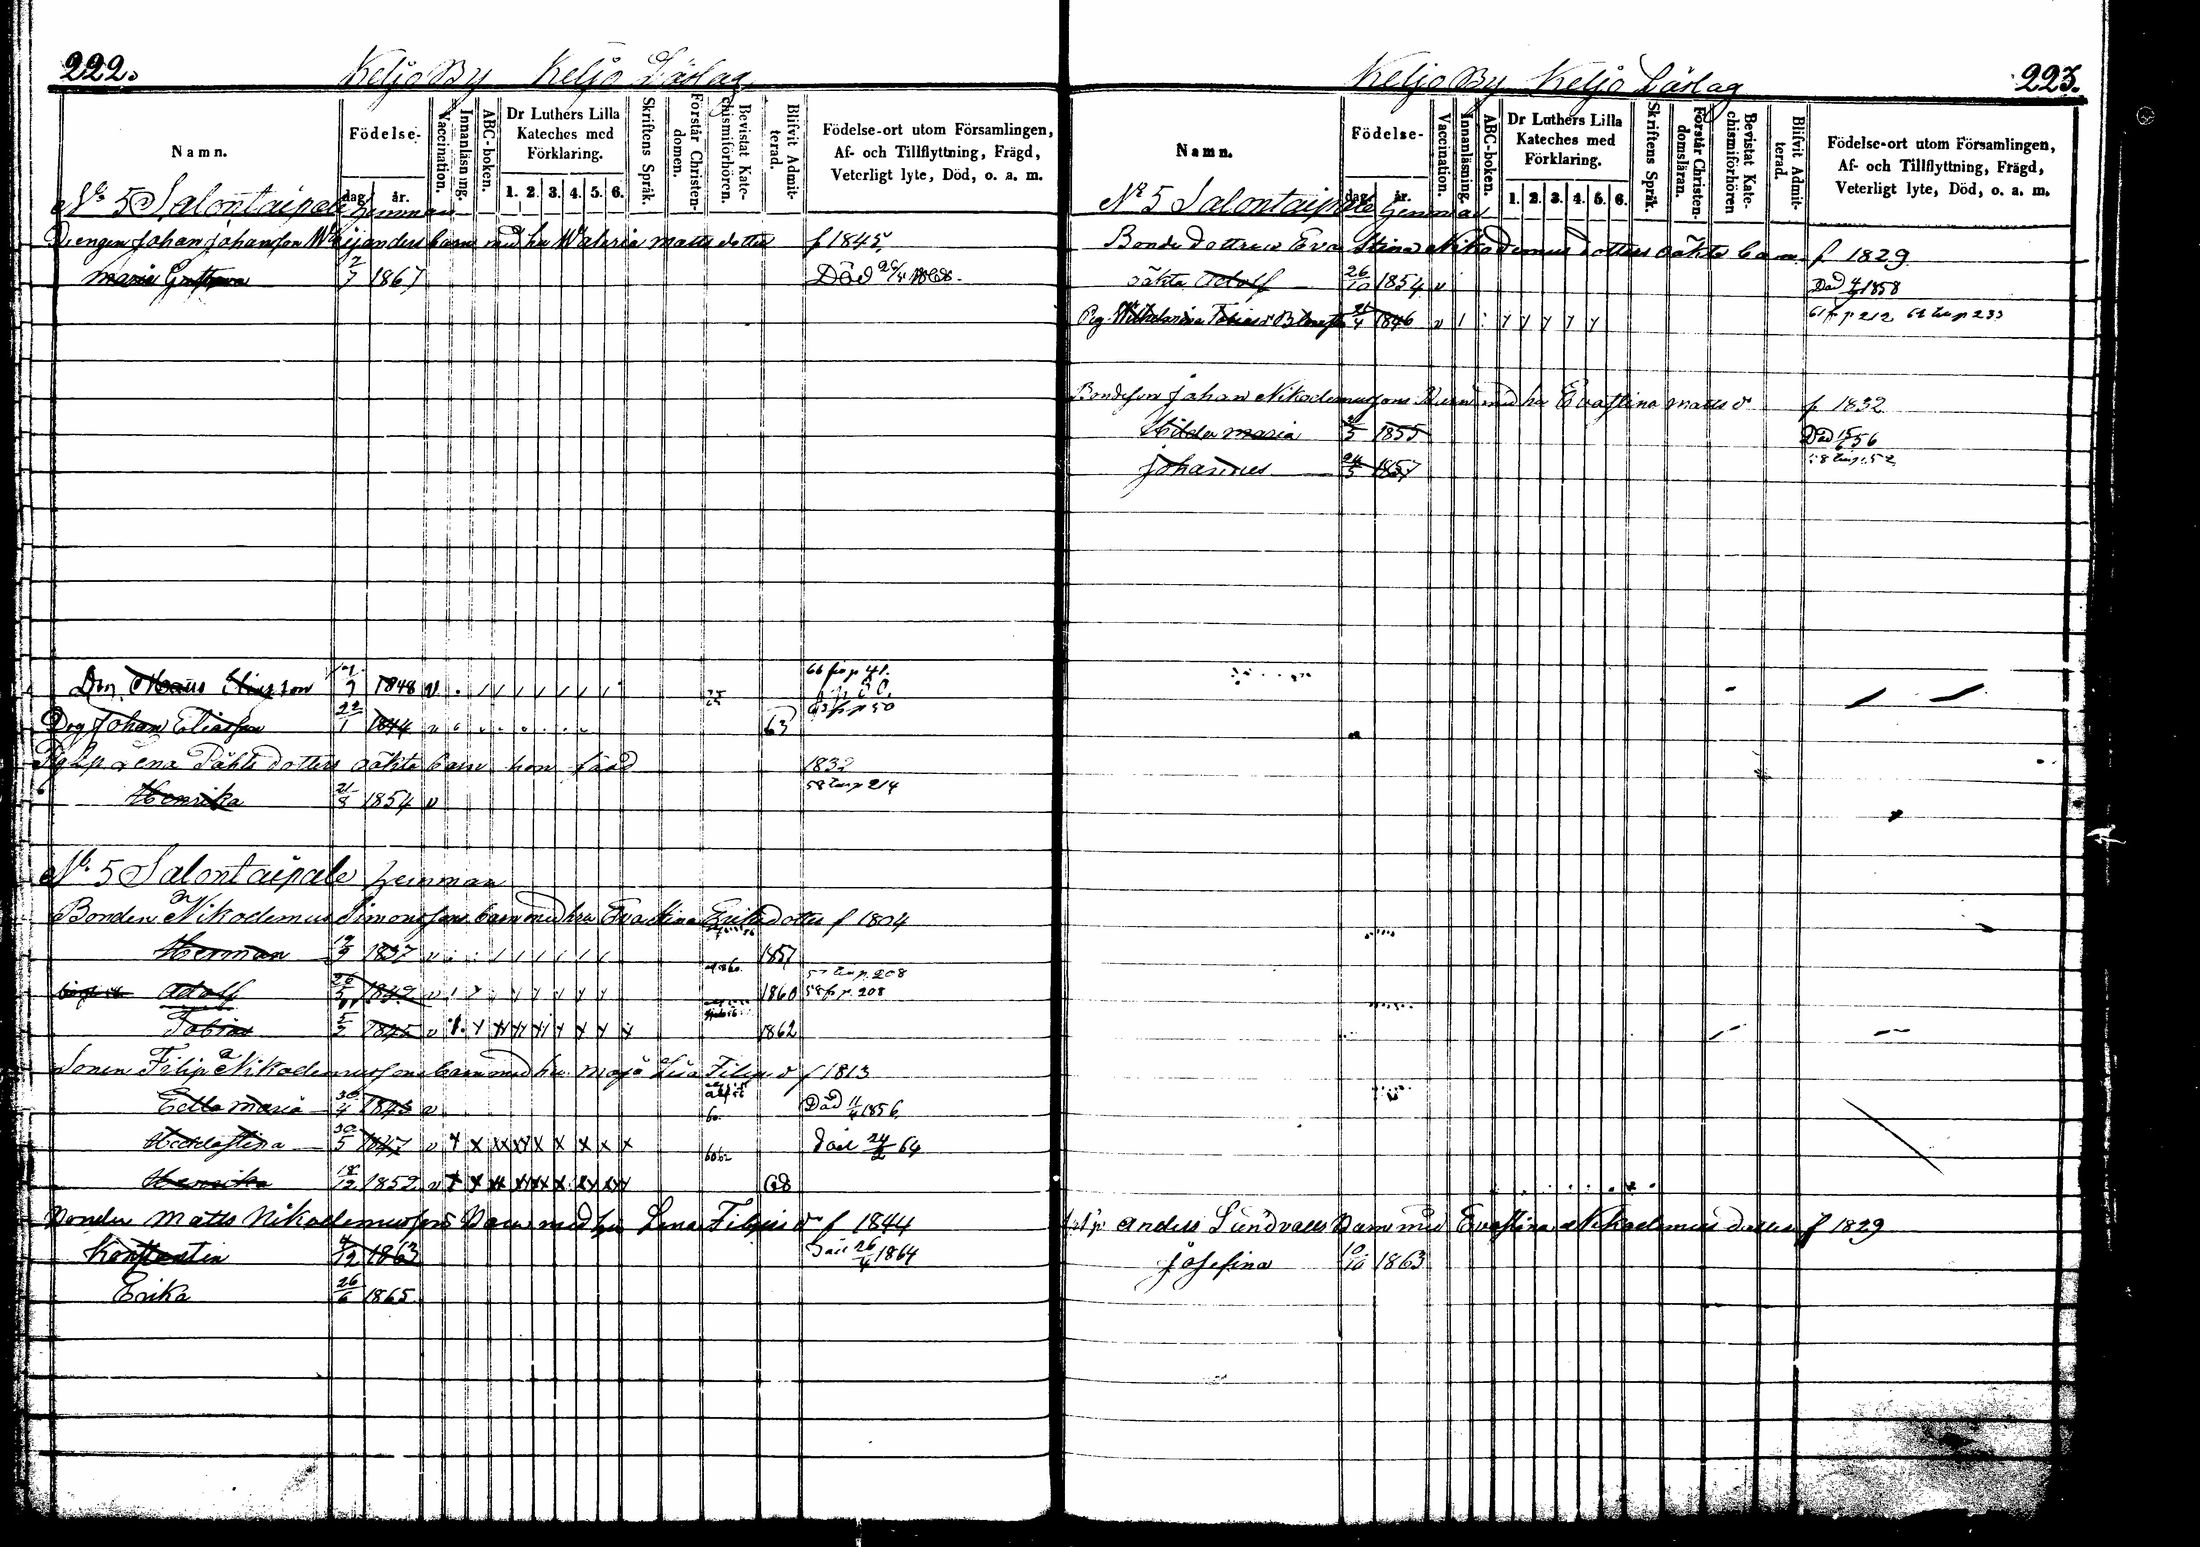 222.
Keljo By Keljo Läslag
Namn.
Födelse-
dag. år.
Vaccination.
Innanläsning.
ABC-boken.
Dr Luthers Lilla
Kateches med
Förklaring.
1. 2. 3. 4. 5. 6.
Skriftens Språk.
Förstår Christen-
domen.
Bevistat Kate-
chismiförhören.
Blifvit Admit-
terad.
Födelse-ort utom Församlingen,
Af- och Tillflyttning, Frägd,
Veterligt lyte, Död, o. a. m.
No 5 Salontaipale hemman
Drengen Johan Johansson barn med hu Valeria Matts dotter f 1845
Maria 2/7 1867 Död
Matts Eliasson 1848 v 66 fr p 41.
Drg Johan Eliasson 22/1 1844 v 63 63 fr p 50
Lena dotters oäkta barn hon född 1832
Henrika 21/8 1854 v 58 till p 214
No 5 Salontaipale hemman
Bonden Nikodemus Simonssons barn med hu Eva Stina Eriks dotter f 1804
Herman 1837 v 1857
Adolf 1839 v 1860 58 fr p 208
Tobias 1845 v 1862
Sonen Filip Nikodemussons barn med hu Maja Lisa Filips d f 1813
Edla Maria 30/4 1845 v Död 11/4 1856
30/5 1847 v Död 24/2 64
Henrika 18/12 1852 v 68
Bonden Matts Nikodemussons Barn med hu Lena Filips dr f 1844
Konstantin 4/12 1863 Död 26/4 1864
Erika 26/6 1865
Keljo By Keljo Läslag
223.
Namn.
Födelse-
dag. år.
Vaccination.
Innanläsning.
ABC-boken.
Dr Luthers Lilla
Kateches med
Förklaring.
1. 2. 3. 4. 5. 6.
Skriftens Språk.
Förstår Christen-
domsläran.
Bevistat Kate-
chismiförhören
Blifvit Admit-
terad.
Födelse-ort utom Församlingen,
Af- och Tillflyttning, Frägd,
Veterligt lyte, Död, o. a. m.
No 5 Salontaipale hemman
Bonde dottren Eva Stina Nikodemus dotters oäkta barn f 1829
oäkta Adolf 26/10 1854 v Död 1858
Pig Wilhelmina Tobiasd 1846 v 61 fr p 212 62 till p 233
Bondeson Johan Nikodemussons Barn med hu Eva Stina Matts d f 1832
Hilda Maria 1855 Död 15/6 56
Johannes 24/5 1857 58 till p 52
Anders Sundvalls Barn med Eva Stina Nikodemus dotter f 1829
Josefina 10/10 1863